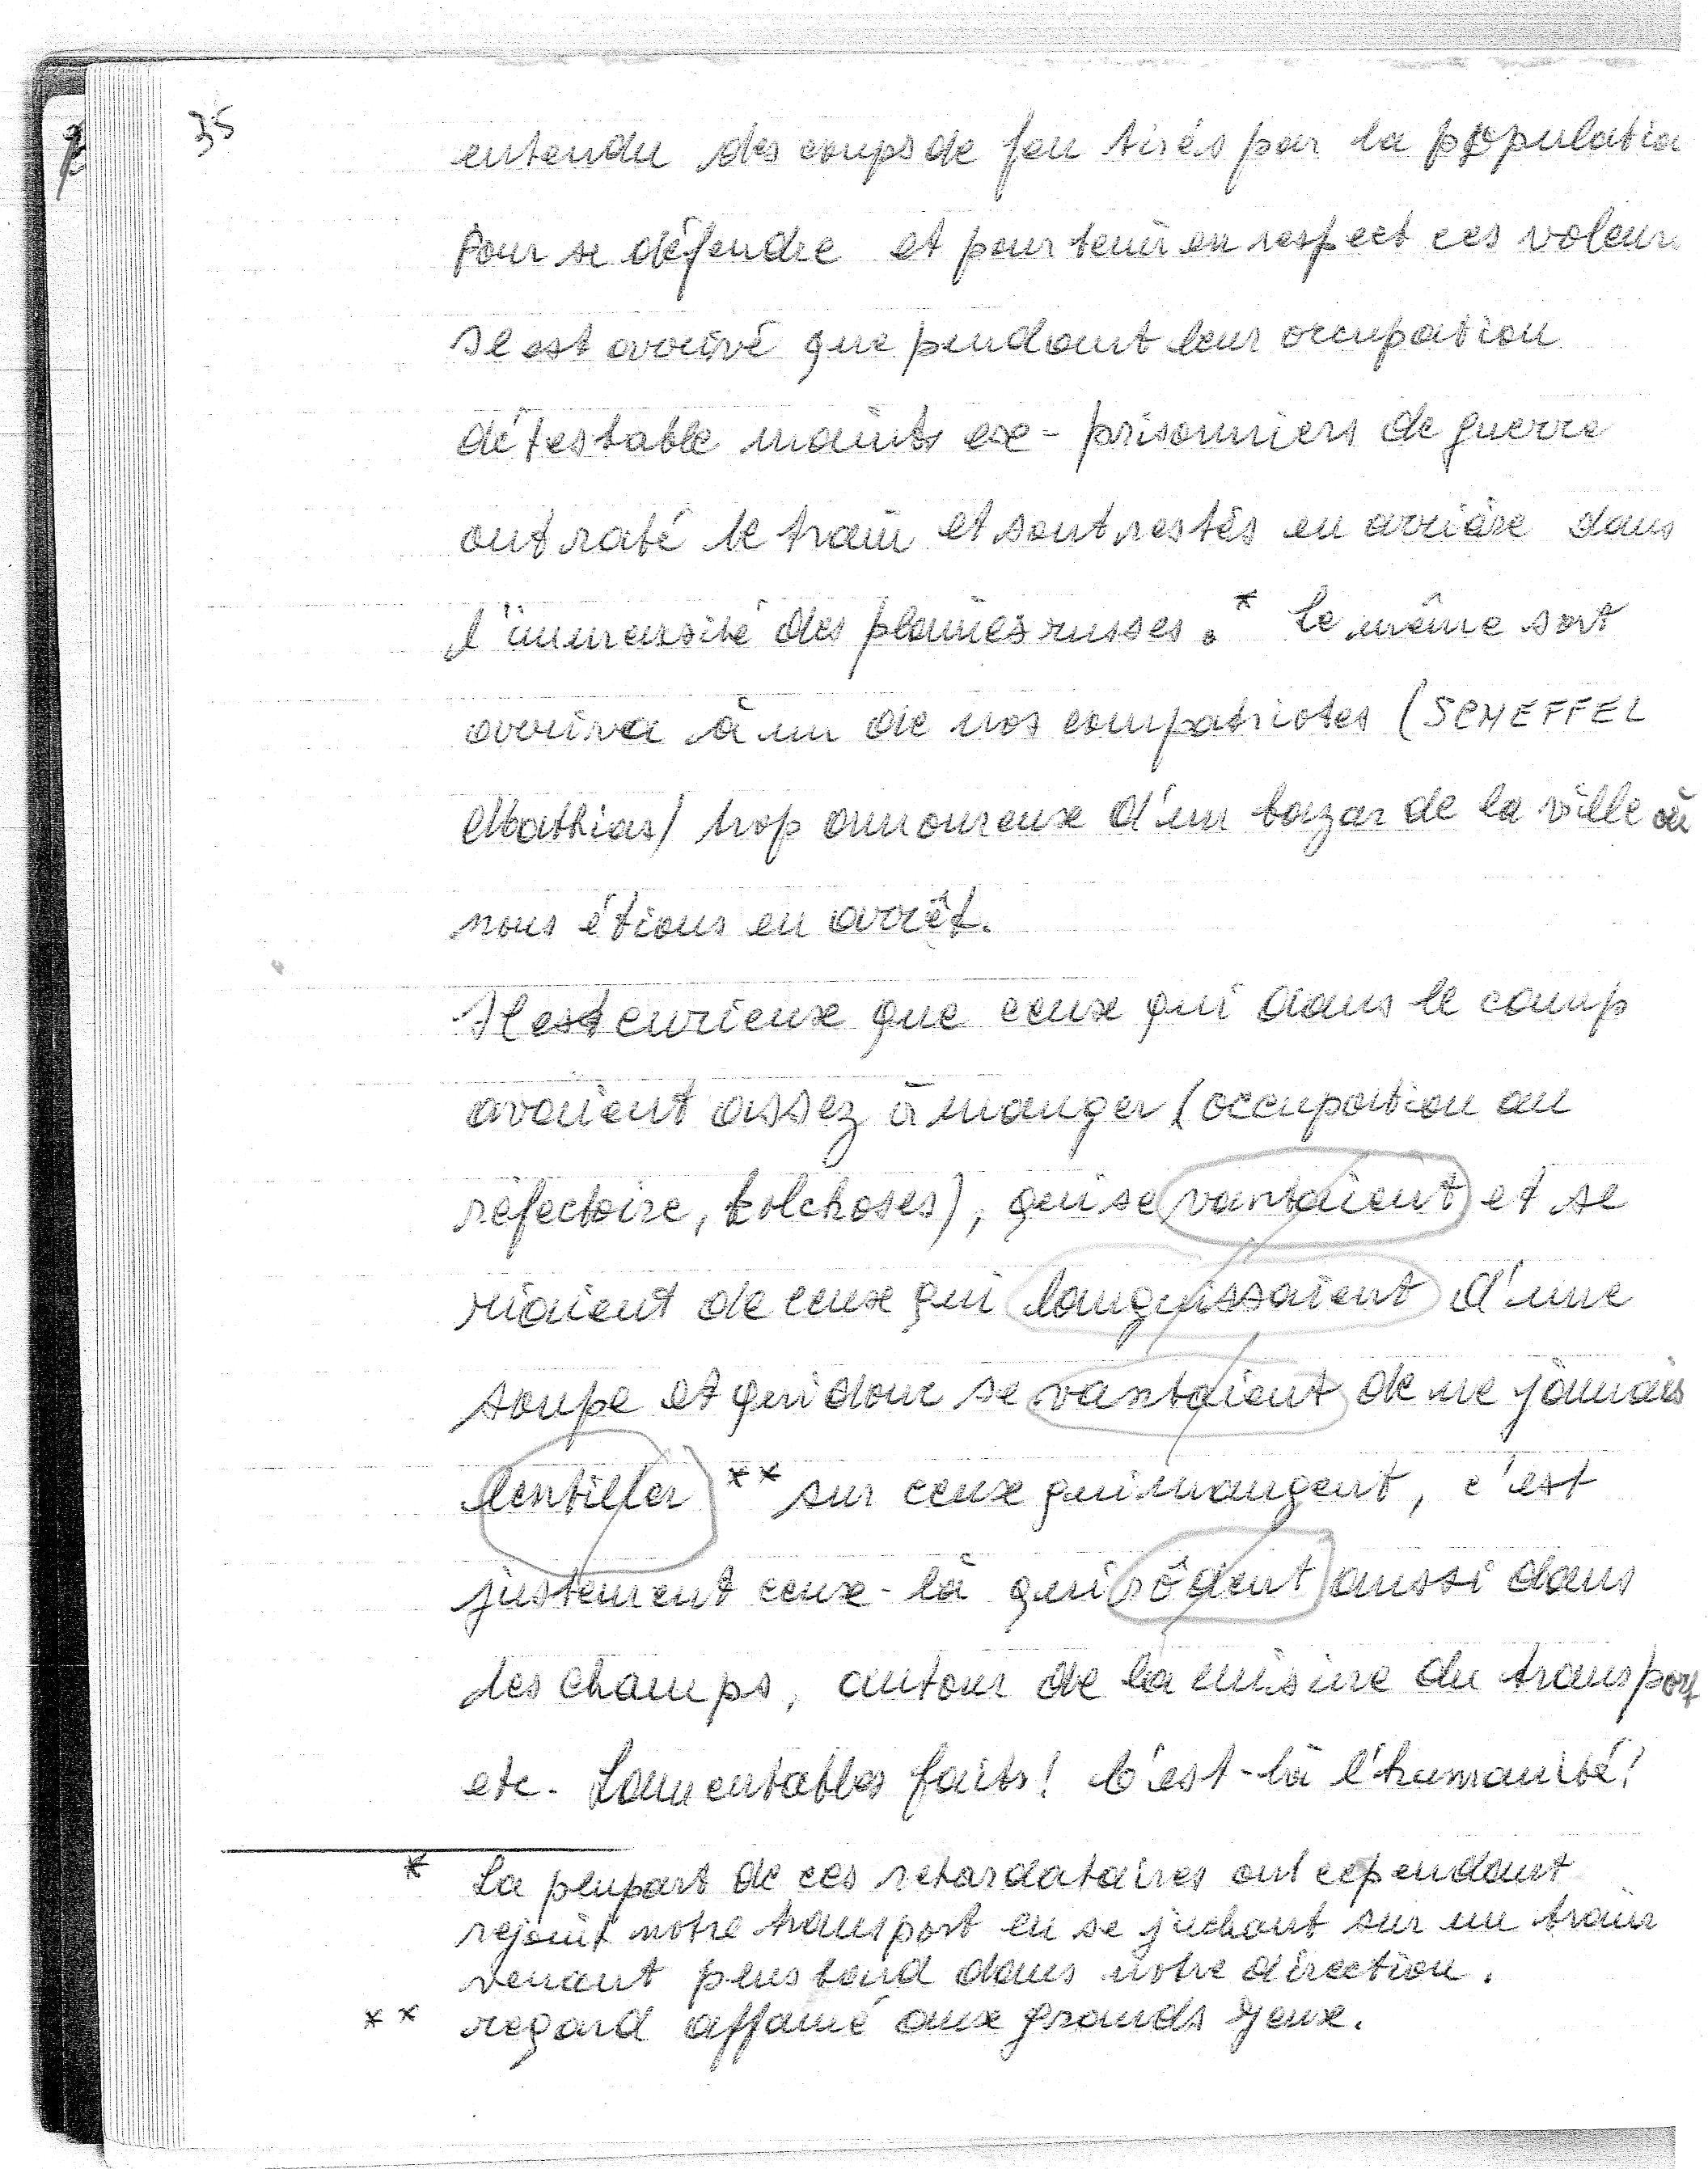 35
entendu des coups de feu tirés par la populatio
Pour se défendre et pour tenir en respect ces voleurs
Il est arrivé que pendant leur occupation
détestable maints ex-prisonniers de guerre
ont raté le train et sont restés en arrière dans
l'immensité des plaines russes.* Le même sort
arriva à un de nos compatriotes (SCHEFFEL
Mathias) trop amoureux d'un bazar de la ville où
nous étions en arrêt.
Il est curieux que ceux qui dans le camp
avaient assez à manger (occupation au
réfectoire, kolchoses), qui se vantaient et se
riaient de ceux qui languissaient d'une
soupe et qui donc se vantaient de ne jamais
lentiller ** sur ceux qui mangent, c'est
justement ceux-là qui rôdent aussi dans
les champs, autour de la misère du transport
etc. Lamentables faits! C'est-là l'humanité!
* La plupart de ces retardataires ont cependant
rejoint notre transport en se juchant sur un train
venant plus tard dans notre direction.
** regard affamé aux grands yeux.